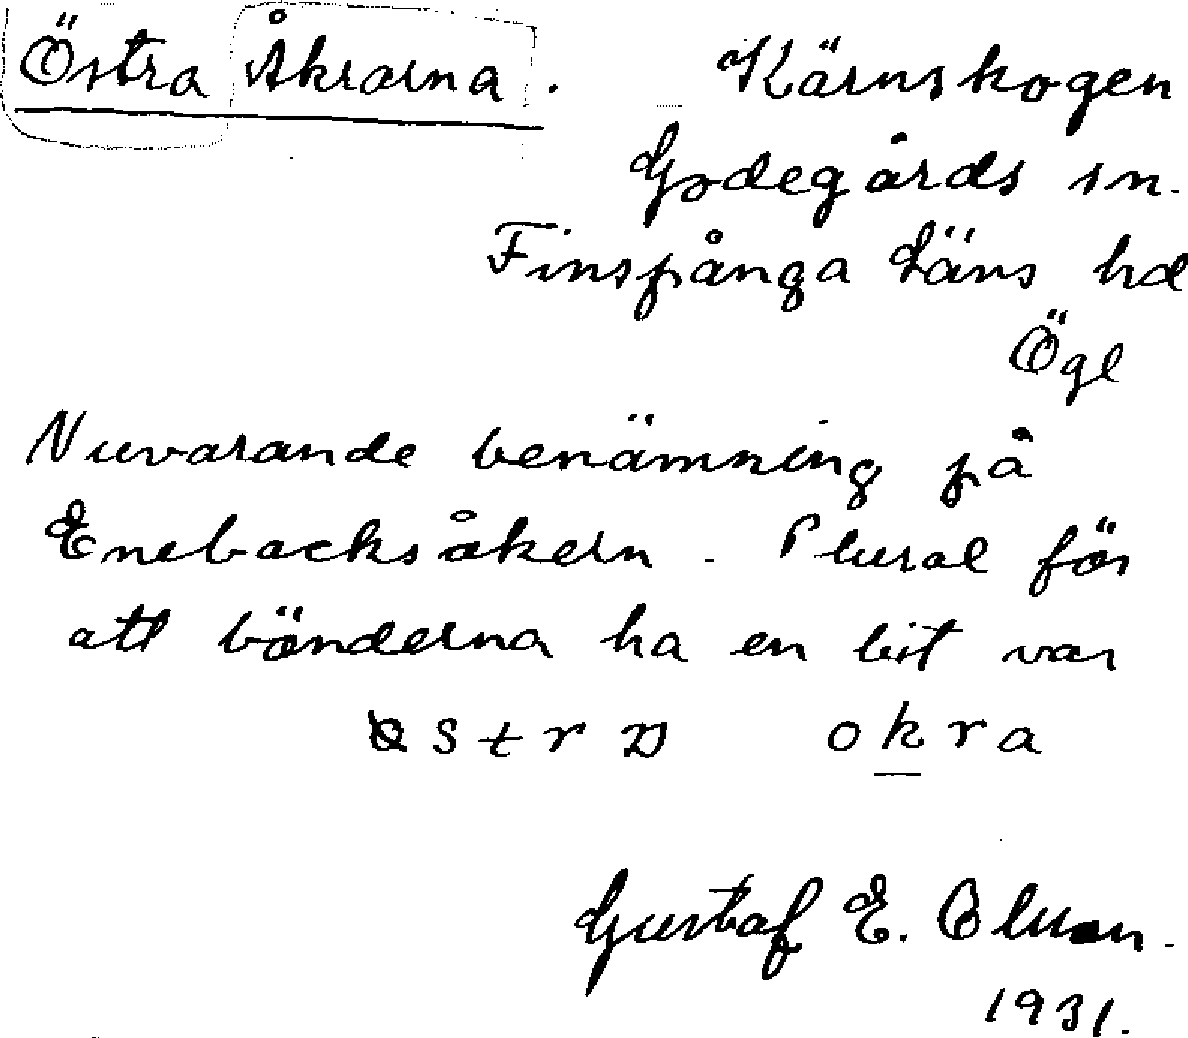 Östra Åkrarna. Kärnskogen
Godegårds sn.
Finspånga Läns hd
Ögl
Nuvarande benämning på
Enebacksåkern. Plural för
att bönderna ha en bit var
okra
Gustaf E. Olsson.
1931.